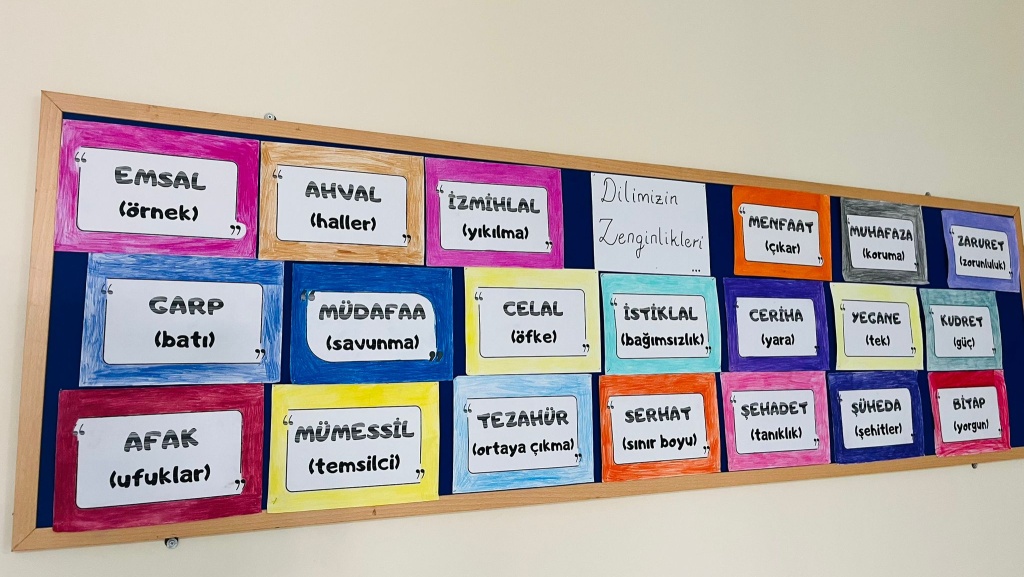 EMSAL
(örnek)
AHVAL
(haller)
İZMİHLAL
(yıkılma)
Dilimizin
Zenginlikleri
...
MENFAAT
(çıkar)
MUHAFAZA
(koruma)
ZARURET
(zorunluluk)
GARP
(batı)
MÜDAFAA
(savunma)
CELAL
(öfke)
İSTİKLAL
(bağımsızlık)
CERİHA
(yara)
YEGANE
(tek)
KUDRET
(güç)
AFAK
(ufuklar)
MÜMESSİL
(temsilci)
TEZAHÜR
(ortaya çıkma)
SERHAT
(sınır boyu)
ŞEHADET
(tanıklık)
ŞÜHEDA
(şehitler)
BİTAP
(yorgun)